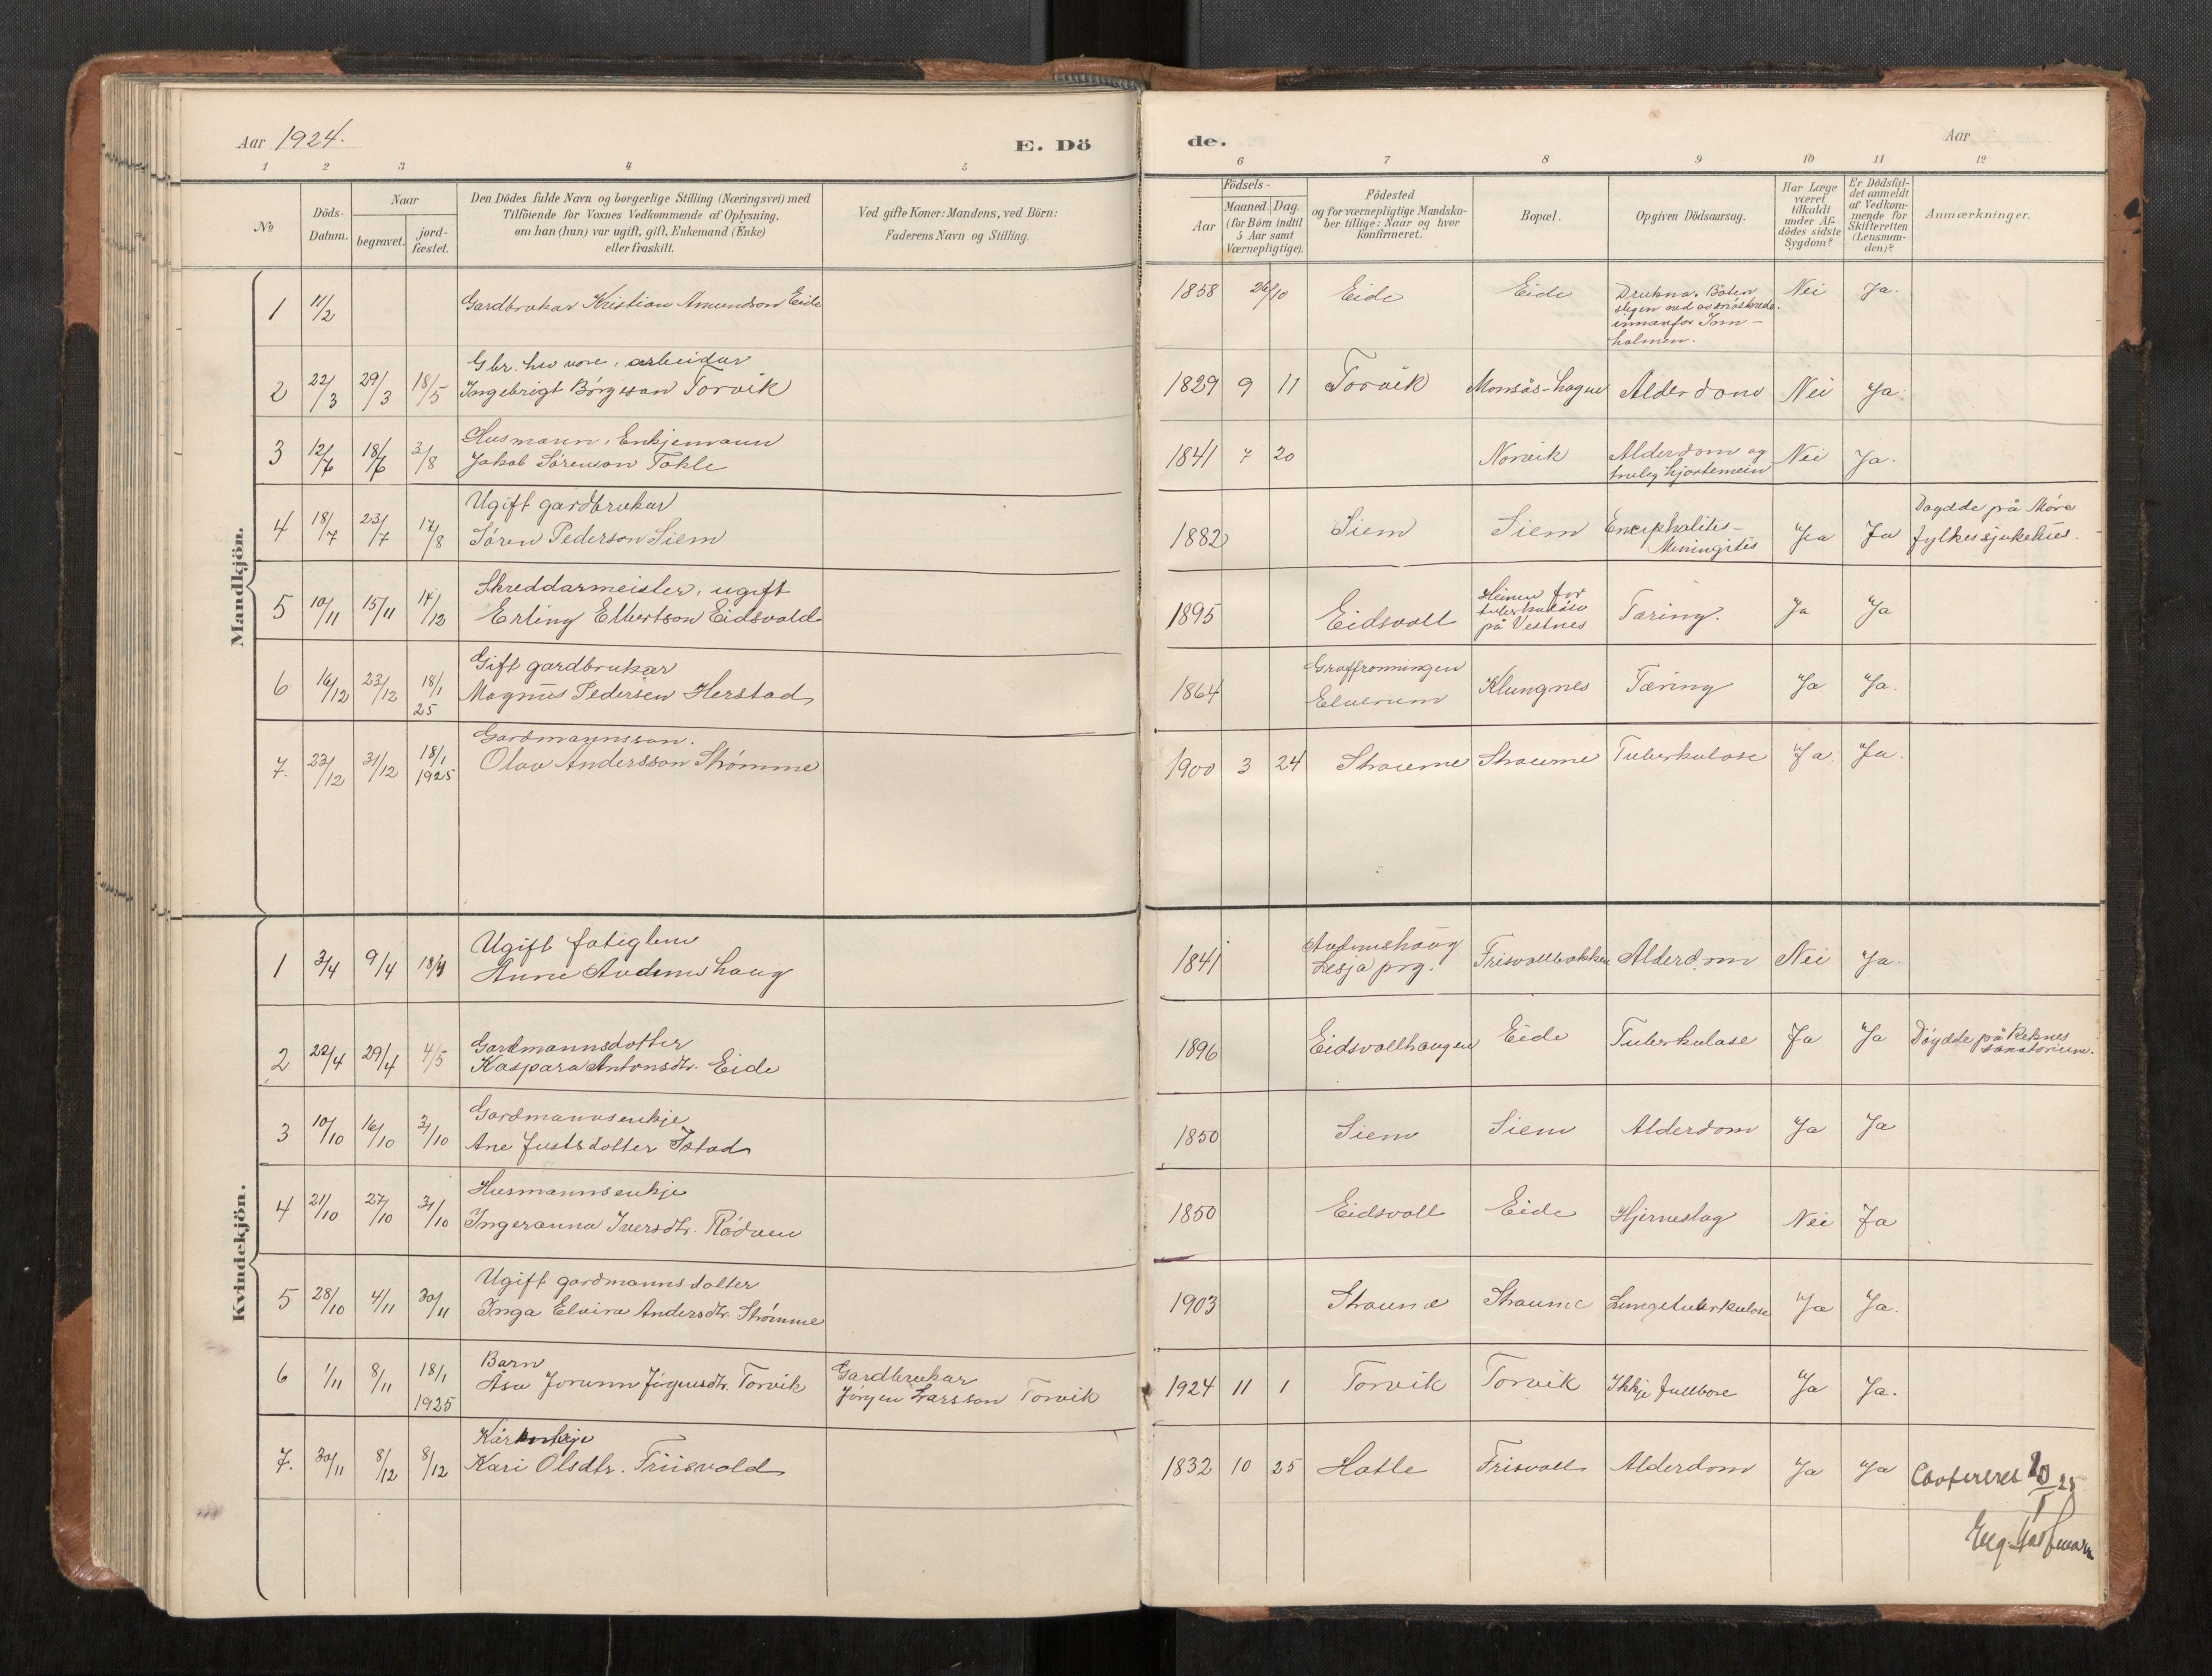 Aar 1924.
E. Dö
de.
Aar
1 2 3 4 5 6 7 8 9 10 11 12
No
Döds-Datum.
Naar
begravet.
jord-fæstet.
Den Dödes fulde Navn og borgerlige Stilling (Næringsvei) med
Tilföiende for Voxnes Vedkommende af Oplysning,
om han (hun) var ugift, gift, Enkemand (Enke)
eller fraskilt.
Ved gifte Koner: Mandens, ved Börn:
Faderens Navn og Stilling.
Födsels-
Aar
Maaned. Dag.
(for Börn indtil
5 Aar samt
Værnepligtige).
Födested
og for værnepligtige Mandska-
ber tillige: Naar og hvor
konfirmeret.
Bopæl.
Opgiven Dödsaarsag.
Har Læge
været
tilkaldt
under Af-
dödes sidste
Sygdom?
Er Dödsfal-
det anmeldt
af Vedkom-
mende for
Skifteretten
(Lensman-
den)?
Anmærkninger.
Mandkjön.
1 11/2 Gardbrukar Kristian Amundson Eide 1858 26/10 Eide Eide Drukna. Båten
slegen ned av snöskreda
innanfor Inn-
holmen. Nei Ja.
Gbr. hev vore, arbeidar
2 22/3 29/3 18/5 Ingebrigt Börgeson Torvik 1829 9 11 Torvik Monsås-hagen Alderdom Nei Ja.
Husmann, Enkjemann
3 12/6 18/6 3/8 Jakob Sörenson Tokle 1841 7 20 Norvik Alderdom og
truleg hjartemein Nei Ja.
Ugift gardbrukar
4 18/7 23/7 17/8 Sören Pederson Siem 1882 Siem Siem Encephalitis-
Meningitis Ja Ja Döydde på Möre
fylkessjukehus.
Skreddarmeister, ugift
5 10/11 15/11 14/12 Erling Elbertson Eidsvold 1895 Eidsvoll Heimen for
tuberkulöse
på Vestnes Tæring. Ja Ja
Gift gardbrukar
6 16/12 23/12 18/1 25 Magnus Pedersen Herstad 1864 Grøffronningen
Elverum Klungnes Tæring Ja Ja.
Gardmannsson.
7. 23/12 31/12 18/1 1925 Olav Andersson Strömme 1900 3 24 Straume Straume Tuberkulose Ja Ja.
Kvindekjön.
Ugift fatiglem
1 3/4 9/4 18/4 Anne Andemshaug 1841 Andemshaug
Lesja prg. Frisvollbakken Alderdom Nei Ja.
Gardmannsdotter
2 22/4 29/4 4/5 Kaspara Antonsdtr. Eide 1896 Eidsvollhaugen Eide Tuberkulose Ja Ja Döydde på Reknes
sanatorium.
Gardmannsenkje
3 10/10 16/10 31/10 Ane Justsdotter Istad 1850 Siem Siem Alderdom Ja Ja
Husmannsenkje
4 21/10 27/10 31/10 Ingeranna Iversdtr. Rödven 1850 Eidsvoll Eide Hjerneslag Nei Ja
Ugift gardmannsdotter
5 28/10 4/11 30/11 Inga Elvira Andersdtr. Strömme 1903 Straume Straume Lungetuberkulose Ja Ja.
Barn
6 1/11 8/11 18/1 1925 Åsa Jorunn Jörgensdtr. Torvik Gardbrukar
Jörgen Larsson Torvik 1924 11 1 Torvik Torvik Ikkje fullbore Ja Ja.
Kårenkje
7. 30/11 8/12 8/12 Kari Olsdtr. Friisvold 1832 10 25 Hatle Frisvoll Alderdom Ja Ja Confereres 20/1 25